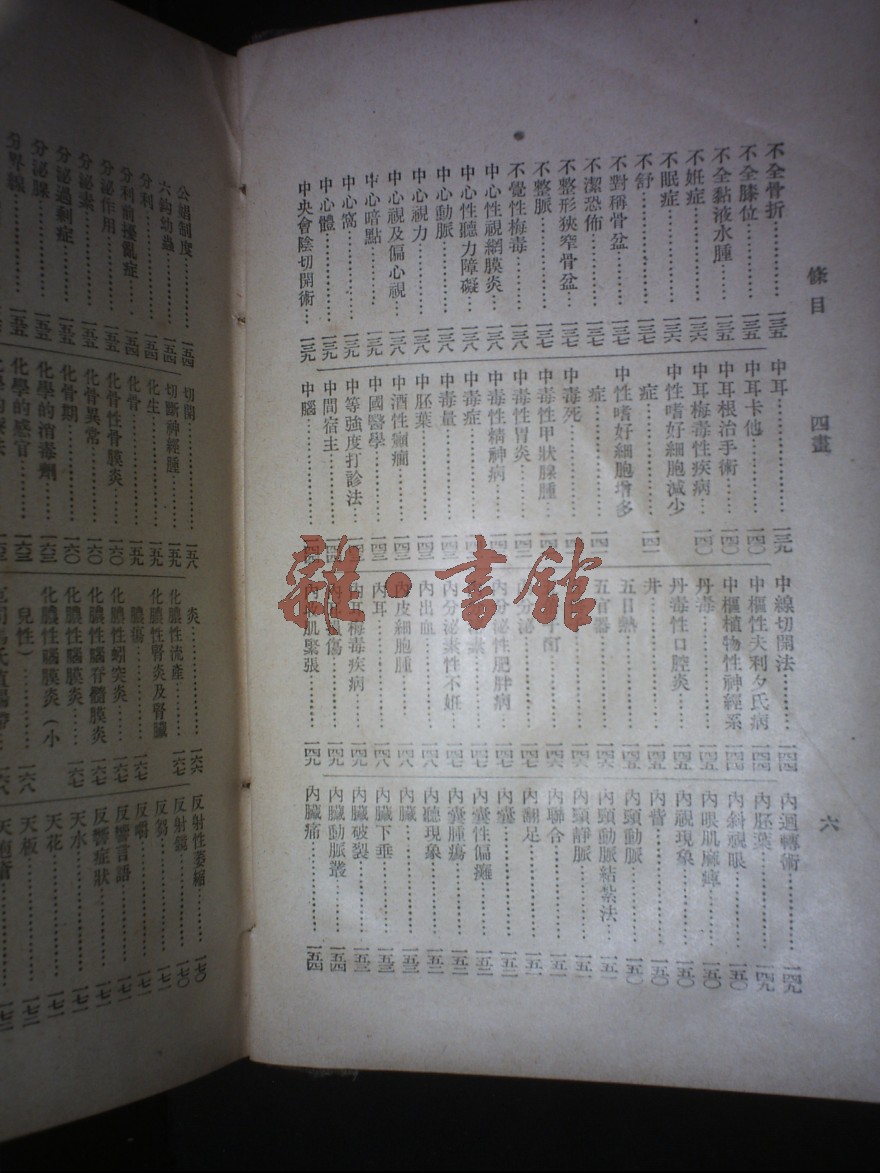 條目 四畫 六
不全骨折…………一三五
不全膝位…………一三五
不全黏液水腫……一三五
不妊症…………一三六
不眠症…………一三六
不舒…………一三七
不對稱骨盆………一三七
不潔恐怖…………一三七
不整形狹窄骨盆…一三七
不整脈…………一三七
不覺性梅毒………一三八
中心性視網膜炎…一三八
中心性聽力障礙…一三八
中心動脈…………一三八
中心視力…………一三八
中心視及偏心視…一三八
中心暗點…………一三九
中心窩…………一三九
中心體…………一三九
中央會陰切開術…一三九
中耳…………一三九
中耳卡他…………一四〇
中耳根治手術……一四〇
中耳梅毒性疾病…一四〇
中性嗜好細胞減少
症…………一四一
中性嗜好細胞增多
症…………一四一
中毒死…………
中毒性甲狀腺腫…一四二
中毒性胃炎………一四二
中毒性精神病……一四二
中毒症…………一四二
中毒量…………一四三
中胚葉…………一四三
中酒性癲癇………一四三
中國醫學…………一四三
中等強度打診法…一四四
中間宿主…………
中腦…………
中線切開法………一四四
中樞性夫利夕氏病…一四四
中樞植物性神經系…一四四
丹毒…………一四五
丹毒性口腔炎……一四五
井…………一四五
五日熱…………一四五
五官器…………一四六
內分泌…………一四七
內分泌性肥胖病…一四七
內分泌素性不妊…一四七
內出血…………一四八
內皮細胞腫………一四八
內耳…………一四八
內耳梅毒疾病……一四九
內肌緊張…………一四九
內迴轉術…………一四九
內胚葉…………一四九
內斜視眼…………一五〇
內眼肌麻痺………一五〇
內視現象…………一五〇
內眥…………一五〇
內頸動脈…………一五〇
內頸動脈結紮法…一五一
內頸靜脈…………一五一
內聯合…………一五一
內翻足…………一五一
內囊…………一五二
內囊性偏癱………一五二
內囊腫瘍…………一五二
內聽現象…………一五二
內臟…………一五三
內臟下垂…………一五三
內臟破裂…………一五三
內臟動脈叢………一五四
內臟痛…………一五四
公娼制度…………一五四
六鉤幼蟲…………一五四
分利…………一五四
分利前擾亂症……一五四
分泌作用…………一五五
分泌素…………一五五
分泌過剩症………一五五
分泌腺…………一五五
分界線…………一五五
切開…………一五八
切斷神經腫………一五九
化生…………一五九
化骨…………一五九
化骨性骨膜炎……一六〇
化骨異常…………一六〇
化骨期…………一六〇
化學的消毒劑……一六二
化學的感官………一六二
炎…………一六六
化膿性流產………一六七
化膿性腎炎及腎臟
膿瘍…………一六七
化膿性蚓突炎……一六七
化膿性腦脊髓膜炎…一六七
化膿性腦膜炎……一六七
化膿性腦膜炎（小
兒性）…………一六八
反射性萎縮………一七〇
反射鏡…………一七〇
反芻…………一七一
反嚼…………一七一
反響言語…………一七一
反響症狀…………一七一
天水…………一七一
天花…………一七一
天板…………一七二
天疱瘡…………一七二
雜·書館